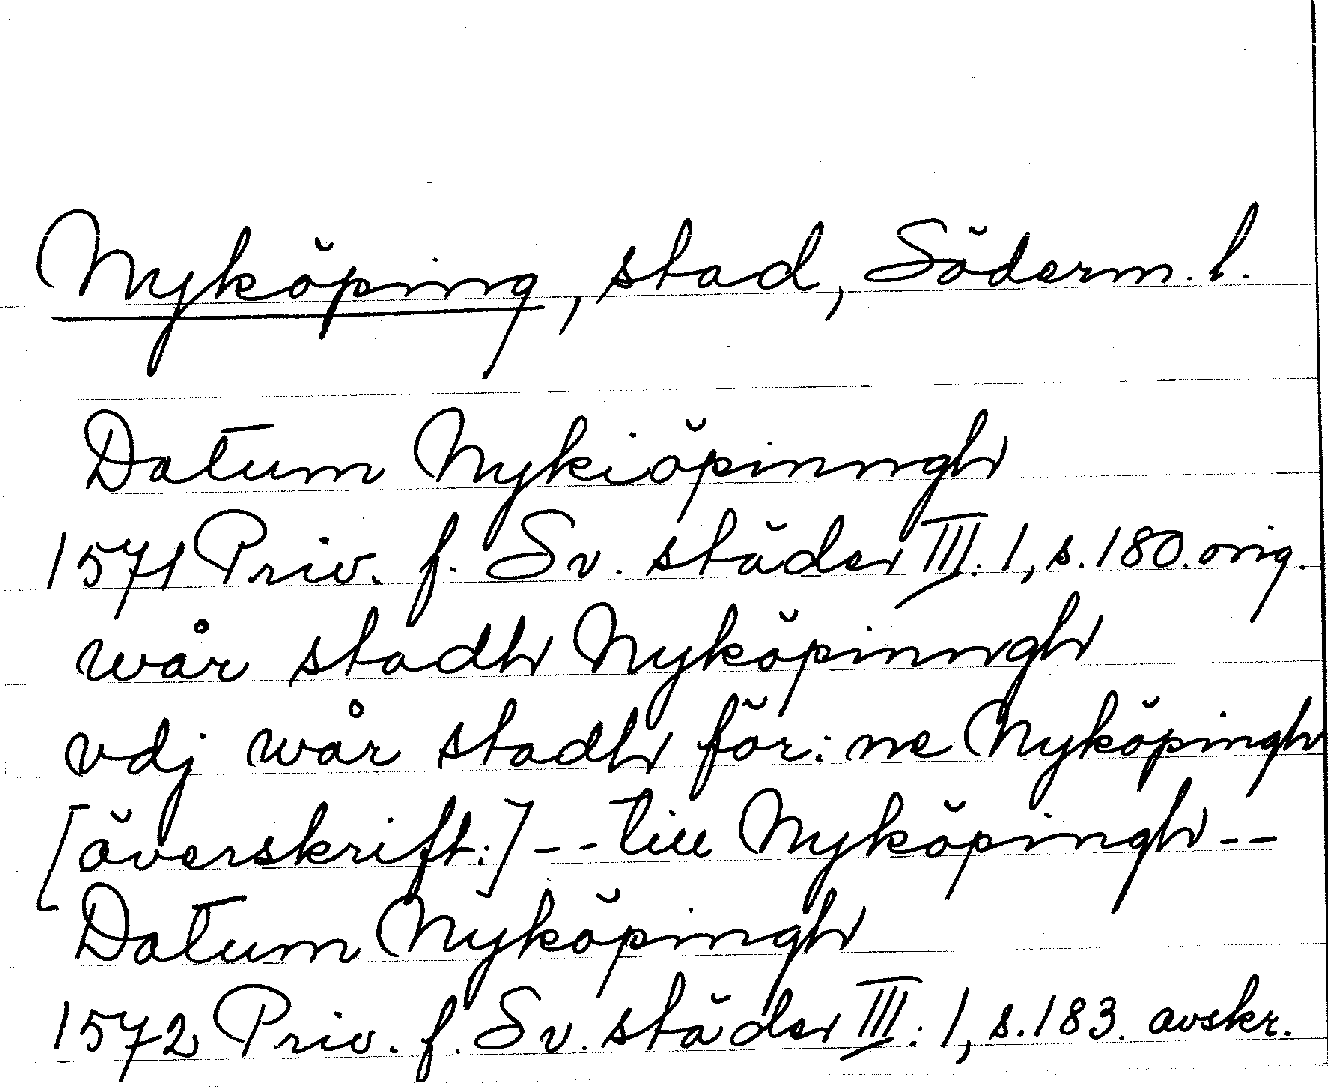 Nyköping, stad, Söderm. l.
Datum Nykiöpinngh
1571 Priv. f. Sv. städer III. 1, s. 180. orig.
wår stadh Nyköpinngh
vdj wår stadh för: ne Nyköpingh
[överskrift:] -- till Nyköpingh --
Datum Nyköpingh
1572 Priv. f. Sv. städer III: 1, s. 183. avskr.